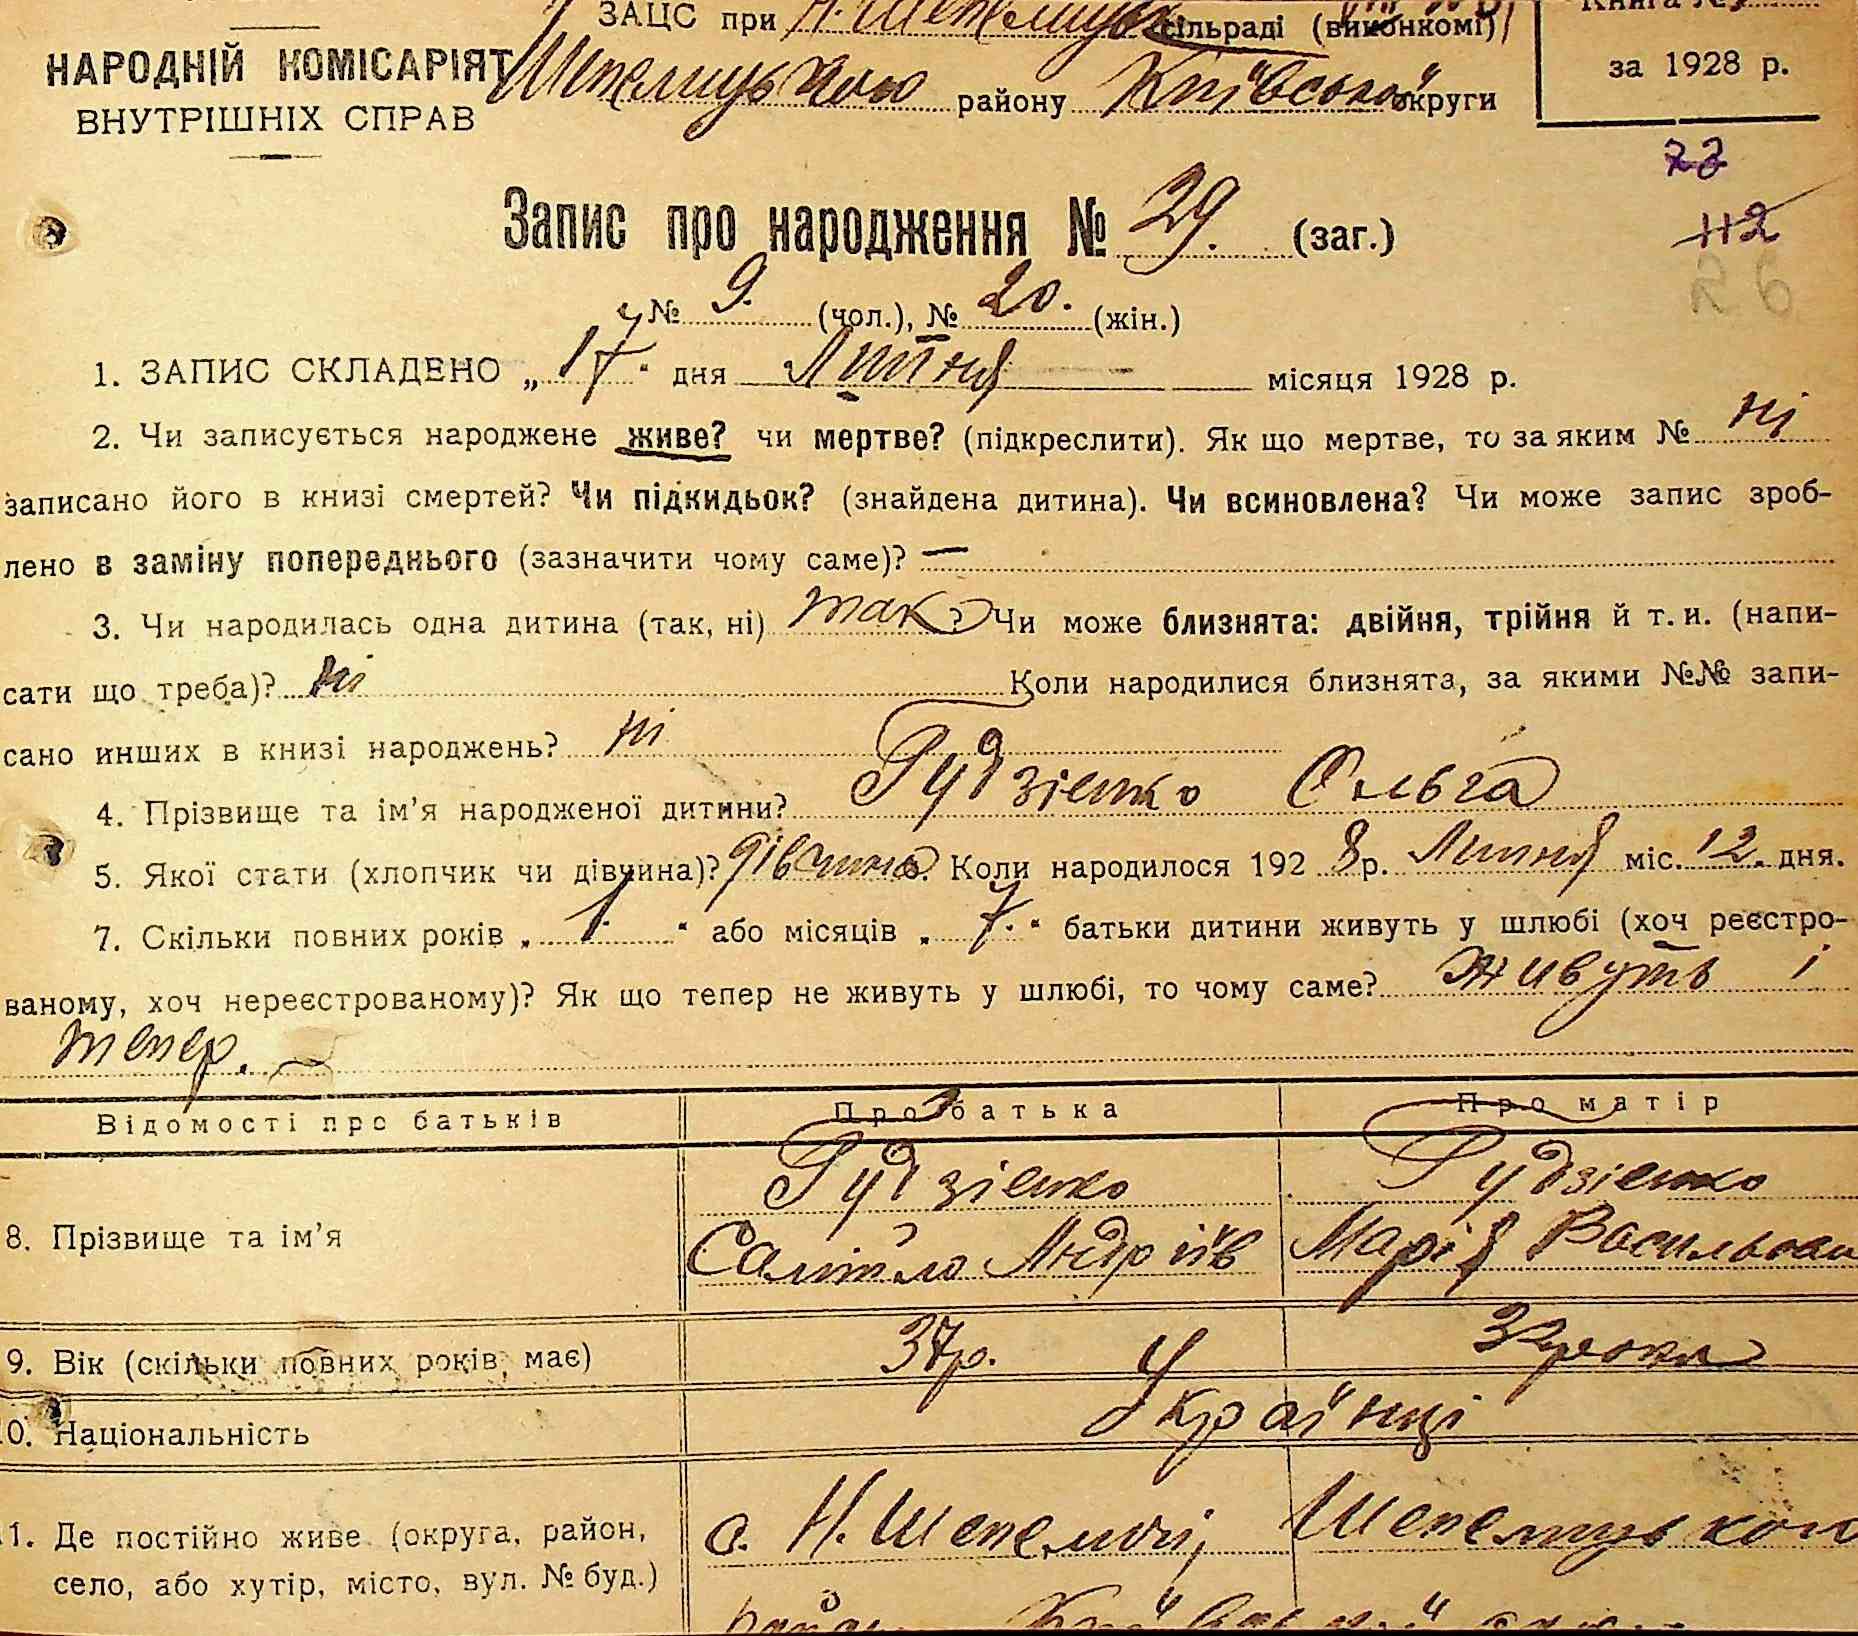 ЗАЦС при Н. Шепелицькій сільраді (виконкомі)
НАРОДНІЙ КОМІСАРІЯТ
ВНУТРІШНІХ СПРАВ
Шепелицького району Київської округи
Книга №
за 1928 р.
22
112
26
Запис про народження № 29. (заг.)
№ 9. (чол.), № 20. (жін.)
1. ЗАПИС СКЛАДЕНО „17“ дня Липня місяця 1928 р.
2. Чи записується народжене живе? чи мертве? (підкреслити). Як що мертве, то за яким № ні
записано його в книзі смертей? Чи підкидьок? (знайдена дитина). Чи всиновлена? Чи може запис зроб-
лено в заміну попереднього (зазначити чому саме)? —
3. Чи народилась одна дитина (так, ні) так? Чи може близнята: двійня, трійня й т. и. (напи-
сати що треба)? ні Коли народилися близнята, за якими №№ запи-
сано инших в книзі народжень? ні
4. Прізвище та ім’я народженої дитини? Гудзіенко Ольга
5. Якої стати (хлопчик чи дівчина)? дівчина. Коли народилося 1928 р. Липня міс. 12. дня.
7. Скільки повних років „1.“ або місяців „7.“ батьки дитини живуть у шлюбі (хоч реєстро-
ваному, хоч нереєстрованому)? Як що тепер не живуть у шлюбі, то чому саме? живуть і
тепер.
Відомості про батьків Про батька Про матір
8. Прізвище та ім’я
Гудзіенко Гудзіенко
Андріїв Марія
9. Вік (скільки повних років має) 37р.
10. Національність Українці
11. Де постійно живе (округа, район,
село, або хутір, місто, вул. № буд.)
с. Н. Шепеличі, Шепелицького